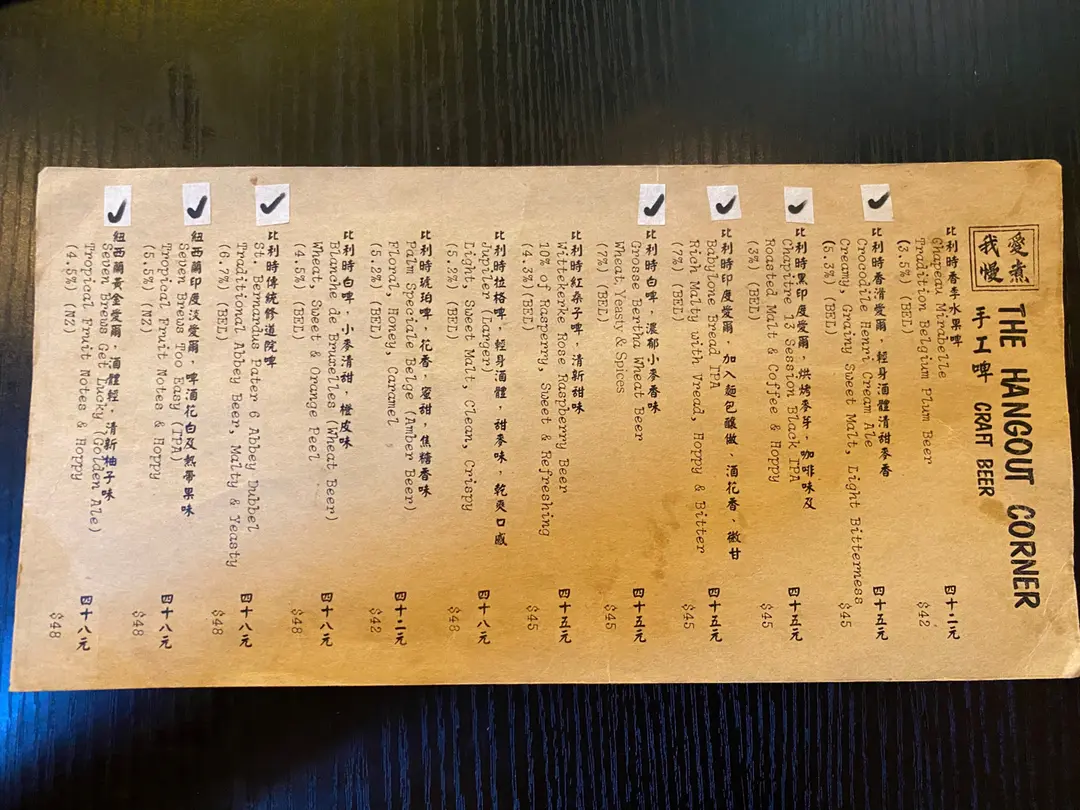 愛煮
我慢
THE HANGOUT CORNER
手工啤 CRAFT BEER
比利時香李水果啤 四十二元
Chapeau Mirabelle $42
Tradition Belgium Plum Beer
(3.5%) (BEL)
✓ 比利時香滑愛爾．輕身酒體清甜麥香 四十五元
Crocodile Henri Cream Ale $45
Creamy, Grainy Sweet Malt, Light Bitterness
(5.3%) (BEL)
✓ 比利時黑印度愛爾．烘烤麥芽．咖啡味及 四十五元
Chapitre 13 Session Black IPA $45
Roasted Malt & Coffee & Hoppy
(3%) (BEL)
✓ 比利時印度愛爾．加入麵包釀做．酒花香．微甘 四十五元
Babylone Bread IPA $45
Rich Malty with Vread, Hoppy & Bitter
(7%) (BEL)
✓ 比利時白啤．濃郁小麥香味 四十五元
Grosse Bertha Wheat Beer $45
Wheat, Yeasty & Spices
(7%) (BEL)
比利時紅桑子啤．清新甜味 四十五元
Wittekerke Rose Raspberry Beer $45
10% of Raspberry, Sweet & Refreshing
(4.3%) (BEL)
比利時拉格啤．輕身酒體．甜麥味．乾爽口感 四十八元
Jupiler (Larger) $48
Light, Sweet Malt, Clean, Crispy
(5.2%) (BEL)
比利時琥珀啤．花香．蜜甜．焦糖香味 四十二元
Palm Speciale Belge (Amber Beer) $42
Floral, Honey, Caramel
(5.2%) (BEL)
比利時白啤．小麥清甜．橙皮味 四十八元
Blanche de Bruxelles (Wheat Beer) $48
Wheat, Sweet & Orange Peel
(4.5%) (BEL)
✓ 比利時傳統修道院啤 四十八元
St. Bernardus Pater 6 Abbey Dubbel $48
Traditional Abbey Beer, Malty & Yeasty
(6.7%) (BEL)
✓ 紐西蘭印度淡愛爾．啤酒花白及熱帶果味 四十八元
Seven Brews Too Easy (IPA) $48
Tropical Fruit Notes & Hoppy
(5.5%) (NZ)
✓ 紐西蘭黃金愛爾．酒體輕．清新柚子味 四十八元
Seven Brews Get Lucky (Golden Ale) $48
Tropical Fruit Notes & Hoppy
(4.5%) (NZ)